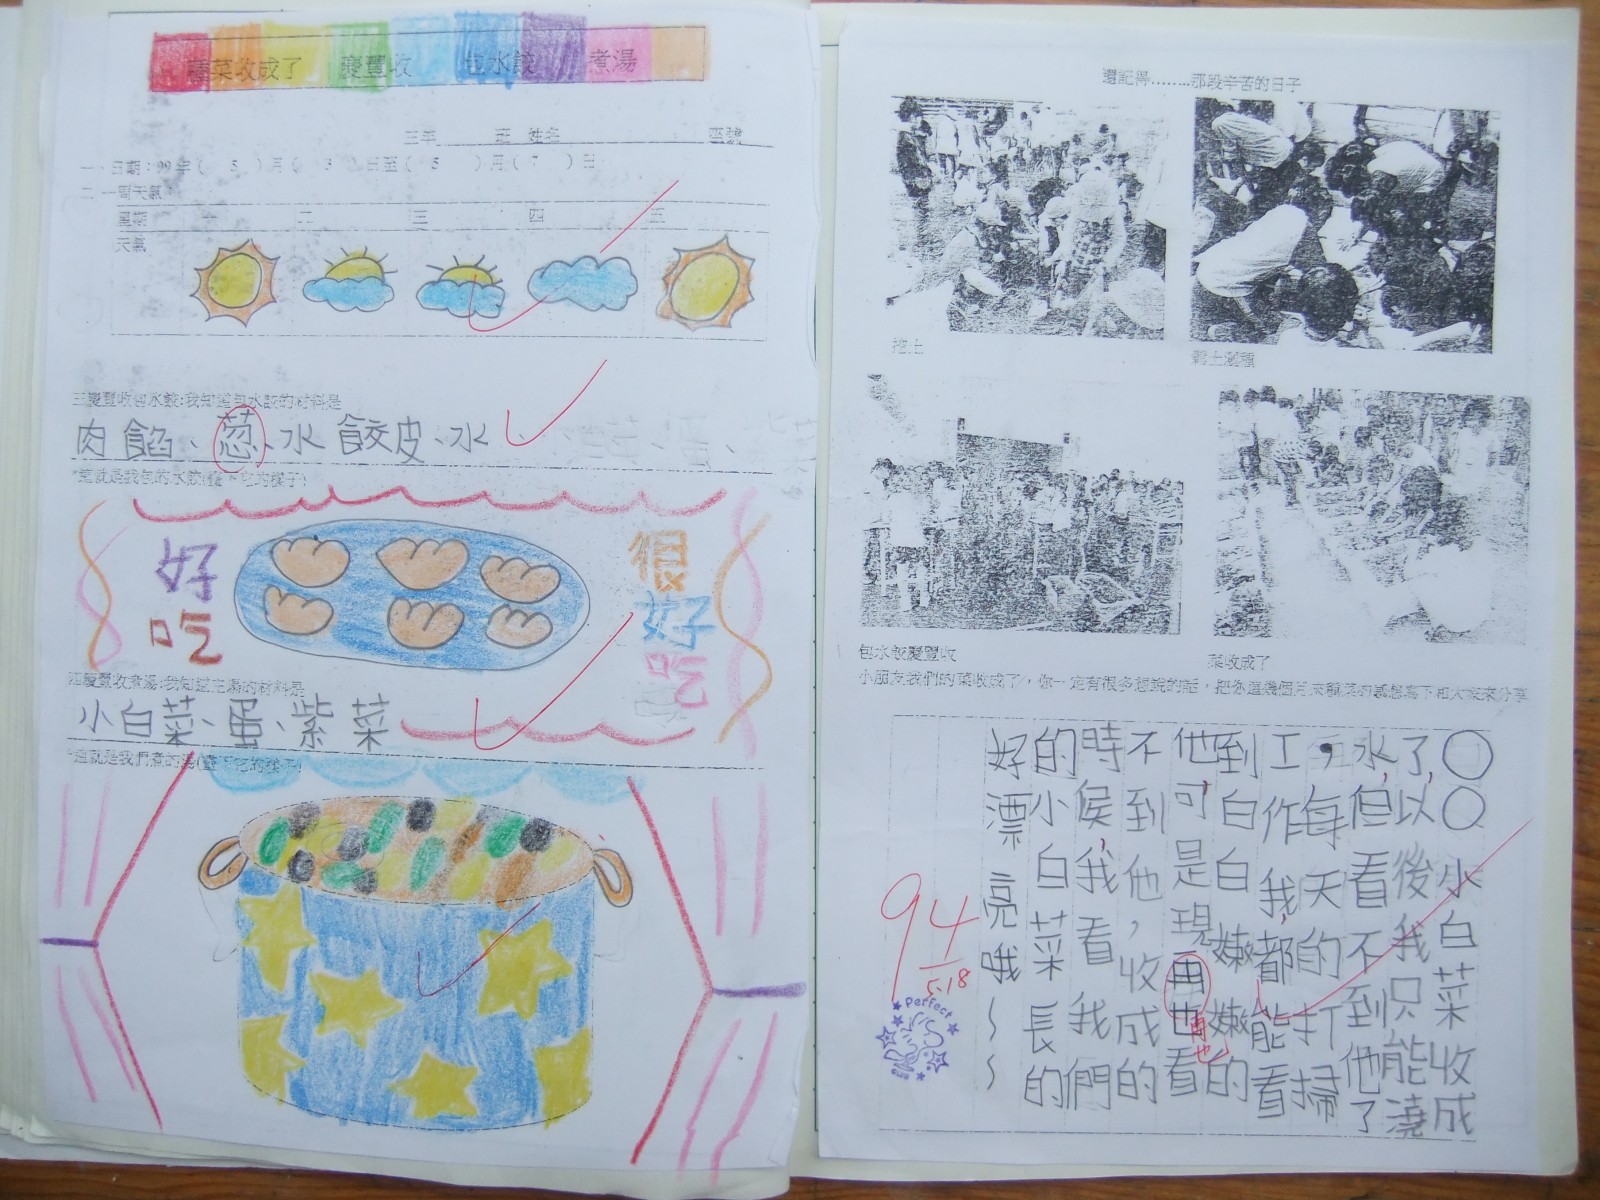 種菜收成了 慶豐收 包水餃 煮湯
三年 班 姓名 座號
一、日期：99年( 5 )月( 3 )日至( 5 )月( 7 )日
二、一周天氣
星期 一 二 三 四 五
天氣
三慶豐收包水餃:我知道包水餃的材料是
肉餡、蔥、水餃皮、水
*這就是我包的水餃(畫下它的樣子)
好吃
很好吃
四慶豐收煮湯:我知道煮湯的材料是
小白菜、蛋、紫菜
*這就是我們煮的湯(畫下它的樣子)
還記得........那段辛苦的日子
挖土
鬆土選種
包水餃慶豐收
菜收成了
小朋友我們的菜收成了，你一定有很多想說的話，把你這幾個月來種菜的感想寫下和大家來分享
○○小白菜收成
了,以後我只能澆
水,但看不到他了
，每天的打掃
工作我,都能看
到白白嫩嫩的
他可是現再也看
再也
不到他，收成的
時侯,我看我們
的小白菜長的
好漂亮哦~~
94
5.18
Perfect